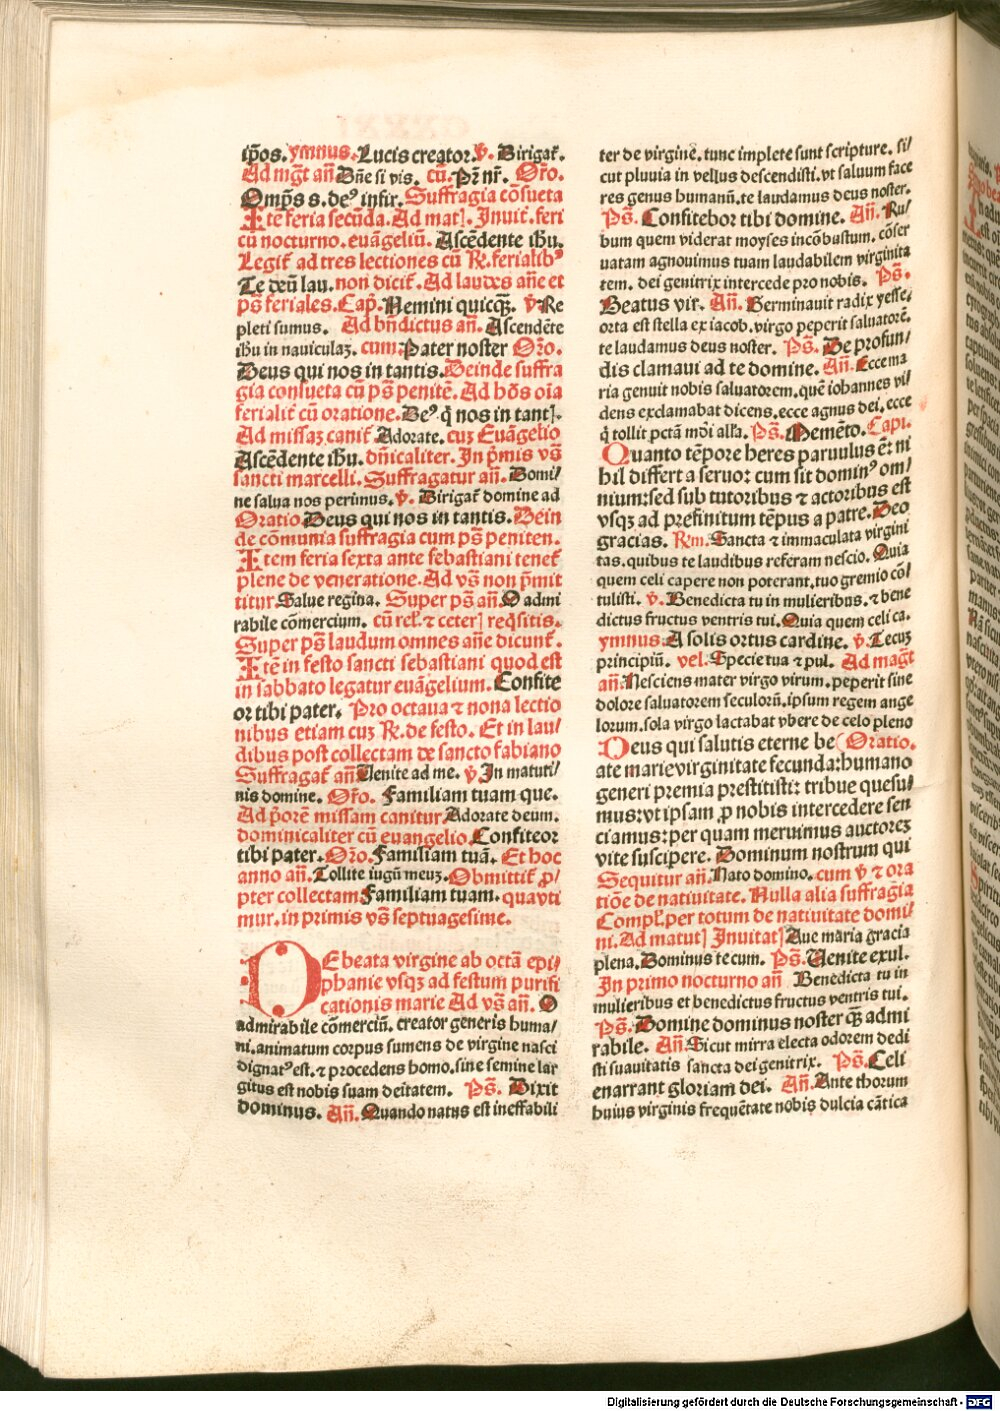 ip̄os. ymnus. Lucis creator. v̄. Dirigat̄.
Ad mag̃t an̄ Dn̄e si vis. cū. Pr̄ nr̄. Or̄o.
Omp̄s s. deꝰ infir. Suffragia cōsueta
Itē feria secūda. Ad mat̄. Inuit̄. feri
cū nocturno. euāgeliū. Ascēdente ihū.
Legit̄ ad tres lectiones cū R̄. ferialibꝰ
Te deū lau. non dicit̄. Ad laudes an̄e et
ps̄ feriales. Cap̄. Nemini quicq̄ꝫ. v̄ Re
pleti sumus. Ad bn̄dictus an̄. Ascendēte
ihū in nauiculaꝫ. cum Pater noster Or̄o.
Deus qui nos in tantis. Deinde suffra
gia consueta cū ps̄ penitē. Ad hōs oīa
ferialit̄ cū oratione. Deꝰ q̄ nos in tantꝭ.
Ad missaꝫ canit̄ Adorate. cuꝫ Euāgelio
Ascēdente ihū. dn̄icaliter. In p̄mis vs̄
sancti marcelli. Suffragatur an̄. Domi/
ne salua nos perimus. v̄. Dirigat̄ domine ad
Oratio Deus qui nos in tantis. Dein
de cōmunia suffragia cum ps̄ peniten.
Item feria sexta ante sebastiani tenet̄
plene de veneratione. Ad vs̄ non p̄mit
titur Salue regina. Super ps̄ an̄ O admi
rabile cōmercium. cū rel̄. ⁊ ceterꝭ reqsitis.
Super ps̄ laudum omnes an̄e dicunt̄.
Itē in festo sancti sebastiani quod est
in sabbato legatur euāgelium. Confite
or tibi pater. Pro octaua ⁊ nona lectio
nibus etiam cuꝫ R̄. de festo. Et in lau/
dibus post collectam de sancto fabiano
Suffragat̄ an̄ Uenite ad me. v̄ In matuti/
nis domine. Or̄o. Familiam tuam que.
Ad p̄orē missam canitur Adorate deum.
dominicaliter cū euangelio. Confiteor
tibi pater. Or̄o. Familiam tuā. Et hoc
anno an̄. Tollite iugū meuꝫ. Obmittit̄ ꝓ/
pter collectam Familiam tuam. qua vti
mur. in primis vs̄ septuagesime.
DE beata virgine ab octā epi/
phanie vsqꝫ ad festum purifi
cationis marie Ad vs̄ an̄. O
admirabile cōmerciū. creator generis huma/
ni. animatum corpus sumens de virgine nasci
dignatꝰ est. ⁊ procedens homo. sine semine lar
gitus est nobis suam deitatem. Ps̄. Dixit
dominus. An̄. Quando natus est ineffabili
ter de virginē. tunc implete sunt scripture. si/
cut pluuia in vellus descendisti. vt saluum face
res genus humanū. te laudamus deus noster.
Ps̄. Confitebor tibi domine. An̄. Ru/
bum quem viderat moyses incōbustum. cōser
uatam agnouimus tuam laudabilem virginita
tem. dei genitrix intercede pro nobis. Ps̄.
Beatus vir. An̄. Germinauit radix yesse.
orta est stella ex iacob. virgo peperit saluatorē.
te laudamus deus noster. Ps̄. De profun/
dis clamaui ad te domine. An̄. Ecce ma
ria genuit nobis saluatorem. quē iohannes vi/
dens exclamabat dicens. ecce agnus dei. ecce
q̄ tollit pctā mōi alla. Ps̄. Memēto. Capi.
Quanto tēpore heres paruulus ē: ni
hil differt a seruo: cum sit dominꝰ om/
nium: sed sub tutoribus ⁊ actoribus est
vsqꝫ ad prefinitum tēpus a patre. Deo
gracias. Rm̄. Sancta ⁊ immaculata virgini
tas. quibus te laudibus referam nescio. Quia
quem celi capere non poterant. tuo gremio cō/
tulisti. v̄. Benedicta tu in mulieribus. ⁊ bene
dictus fructus ventris tui. Quia quem celi ca.
ymnus. A solis ortus cardine. v̄. Tecuꝫ
principiū. vel. Specie tua ⁊ pul. Ad mag̃t
an̄. Nesciens mater virgo virum. peperit sine
dolore saluatorem seculorū. ipsum regem ange
lorum. sola virgo lactabat vbere de celo pleno
Deus qui salutis eterne be (Oratio.
ate marie virginitate fecunda: humano
generi premia prestitisti: tribue quesu/
mus: vt ipsam ꝓ nobis intercedere sen
ciamus: per quam meruimus auctoreꝫ
vite suscipere. Dominum nostrum qui
Sequitur an̄. Nato domino. cum v̄ ⁊ ora
tiōe de natiuitate. Nulla alia suffragia
Compl̄. per totum de natiuitate domi/
ni. Ad matutꝭ Inuitatꝭ Aue maria gracia
plena. Dominus tecum. Ps̄. Uenite exul.
In primo nocturno an̄ Benedicta tu in
mulieribus et benedictus fructus ventris tui.
Ps̄. Domine dominus noster q̄ꝫ admi
rabile. An̄. Sicut mirra electa odorem dedi
sti suauitatis sancta dei genitrix. Ps̄. Celi
enarrant gloriam dei. An̄. Ante thorum
huius virginis frequētate nobis dulcia cātica
Digitalisierung gefördert durch die Deutsche Forschungsgemeinschaft - DFG